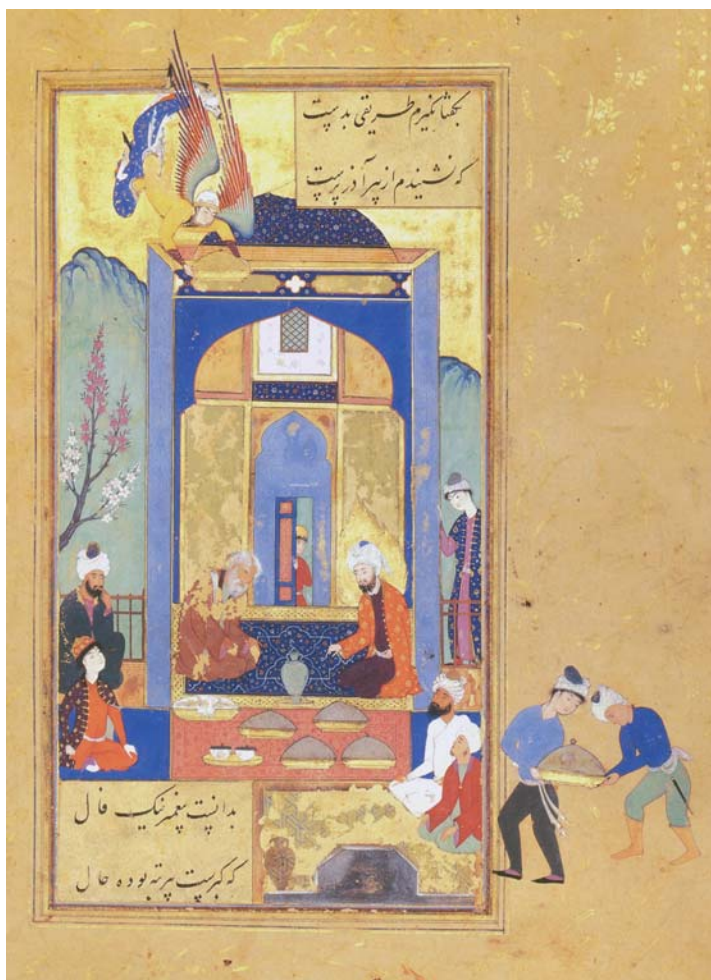 بگفتا نگیرم طریقی بدست
که نشنیدم از پیر آذرپرست
بدانست پیغمبر نیک فال
که گبرست پیر تبه بوده حال